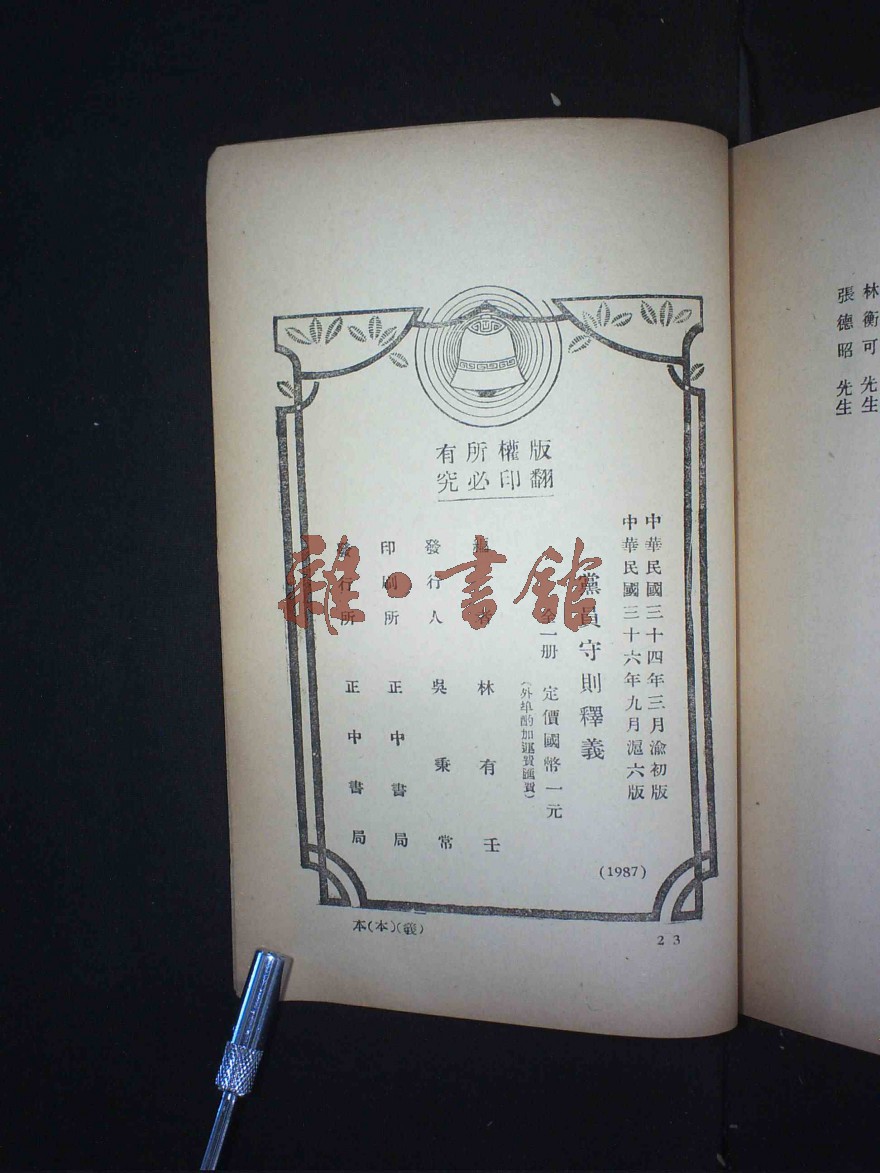 版權所有
翻印必究
中華民國三十四年三月渝初版
中華民國三十六年九月滬六版
黨員守則釋義
全一册 定價國幣一元
(外埠酌加運費匯費)
編著者 林有壬
發行人 吳秉常
印刷所 正中書局
發行所 正中書局
(1987)
本(本)(義)
23
林衡可先生
張德昭先生
雜·書館